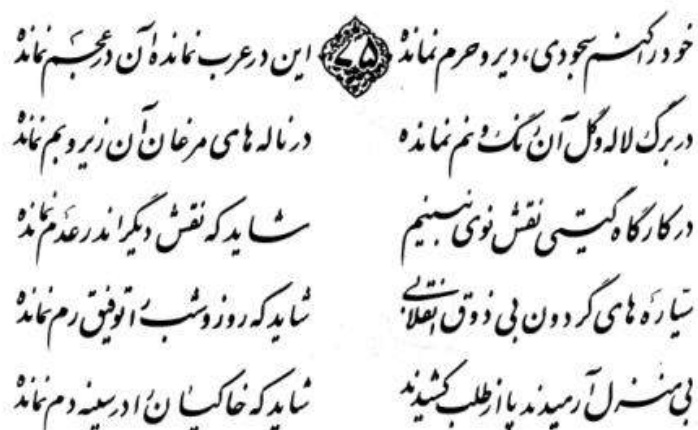 خود را کنم سجودی، دیر و حرم نمانده ۷۵ این در عرب نمانده آن در عجم نمانده
در برگ لاله و گل آن رنگ و نم نمانده در ناله های مرغان آن زیر و بم نمانده
در کارگاه گیتی نقش نوی نبینم شاید که نقش دیگر اندر عدم نمانده
سیاره های گردون بی ذوق انقلابی شاید که روز و شب را توفیق رم نمانده
بی منزل آرمیدند پا از طلب کشیدند شاید که خاکیان را در سینه دم نمانده